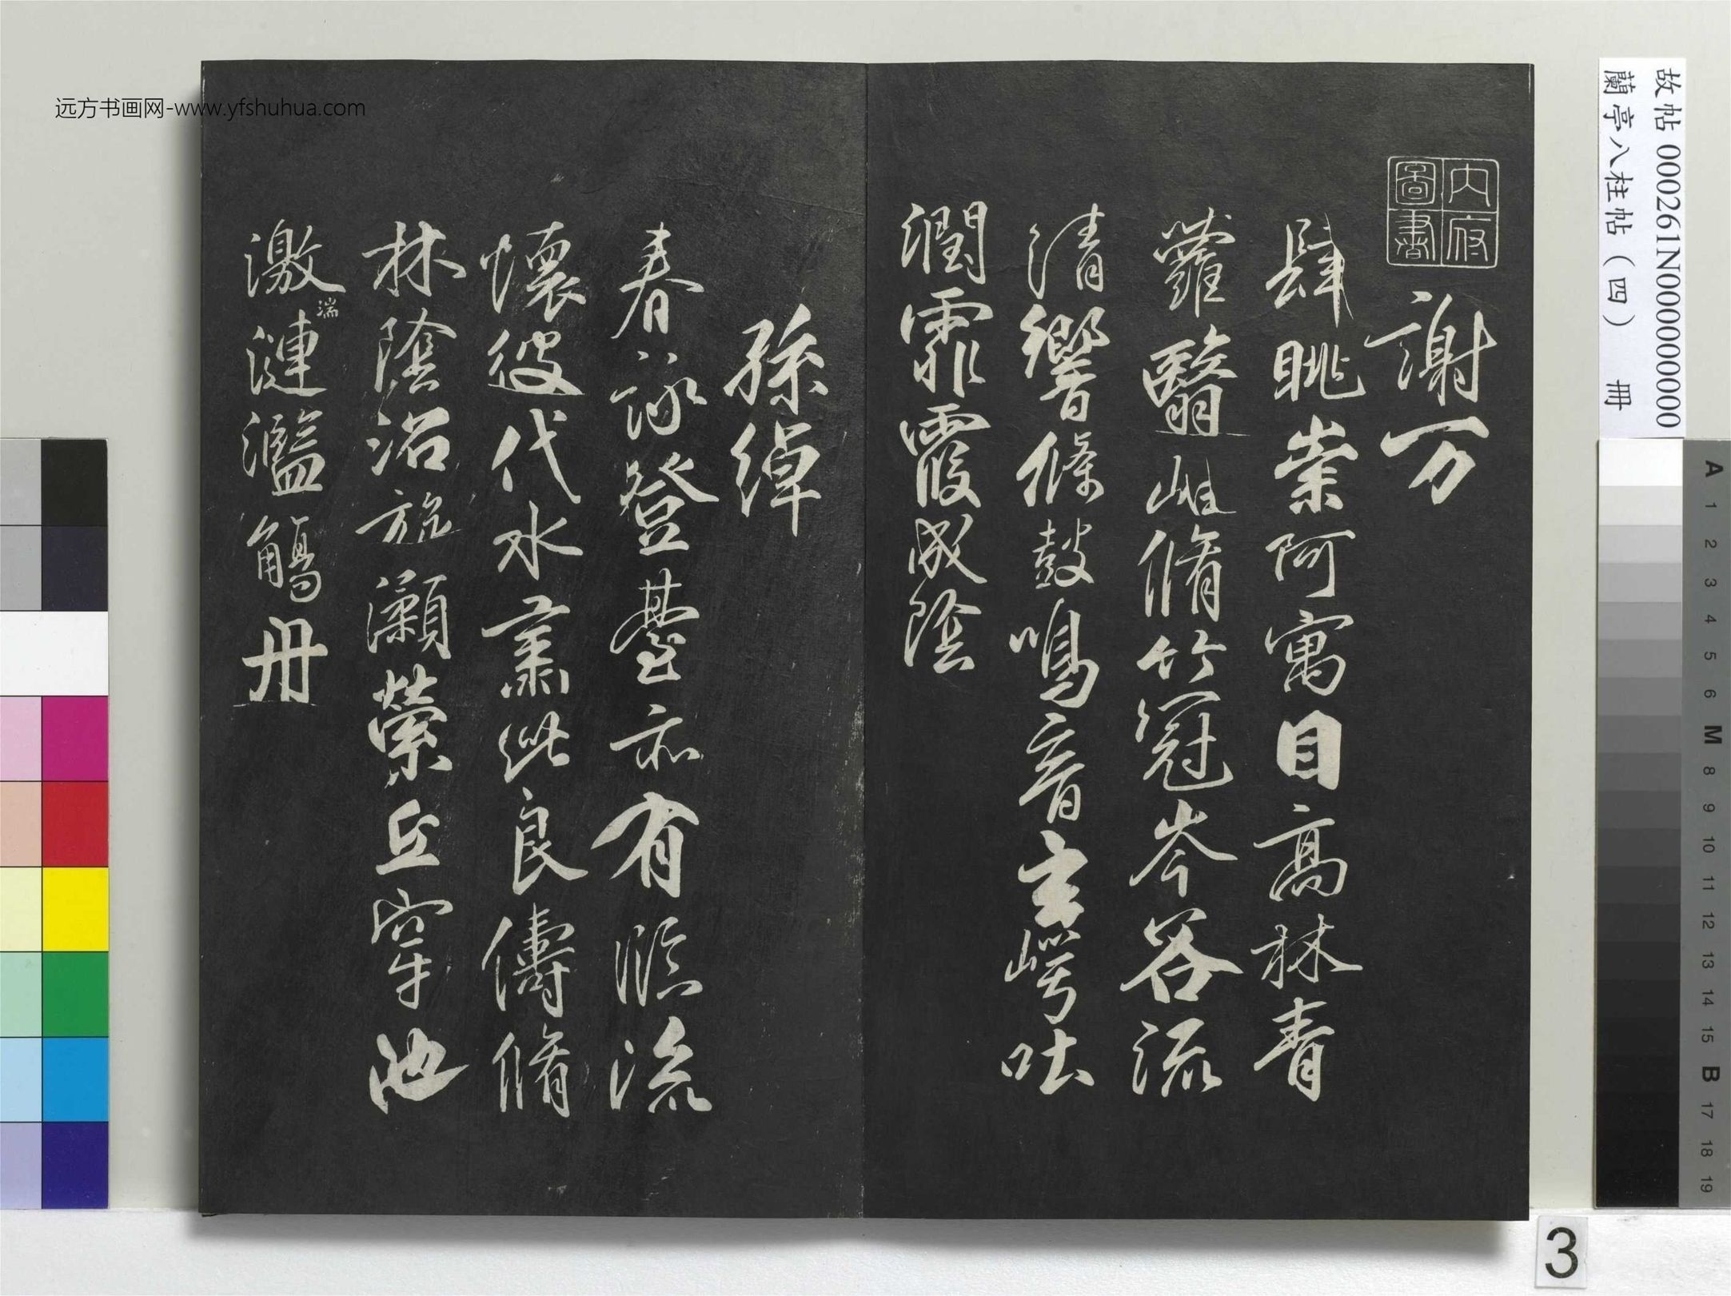 远方书画网-www.yfshuhua.com
故帖 000261N000000000
蘭亭八柱帖（四） 冊
內府圖書
謝万
肆眺崇阿寓目高林青
蘿翳岫脩竹冠岑谷流
清響條鼓鳴音玄崿吐
潤霏霞成陰
孫綽
春詠登臺亦有臨流
懷彼代水肅此良儔脩
林陰沼旋瀨縈丘穿池
激湍漣濫觴冊
A 1 2 3 4 5 6 M 8 9 10 11 12 13 14 15 B 17 18 19
3